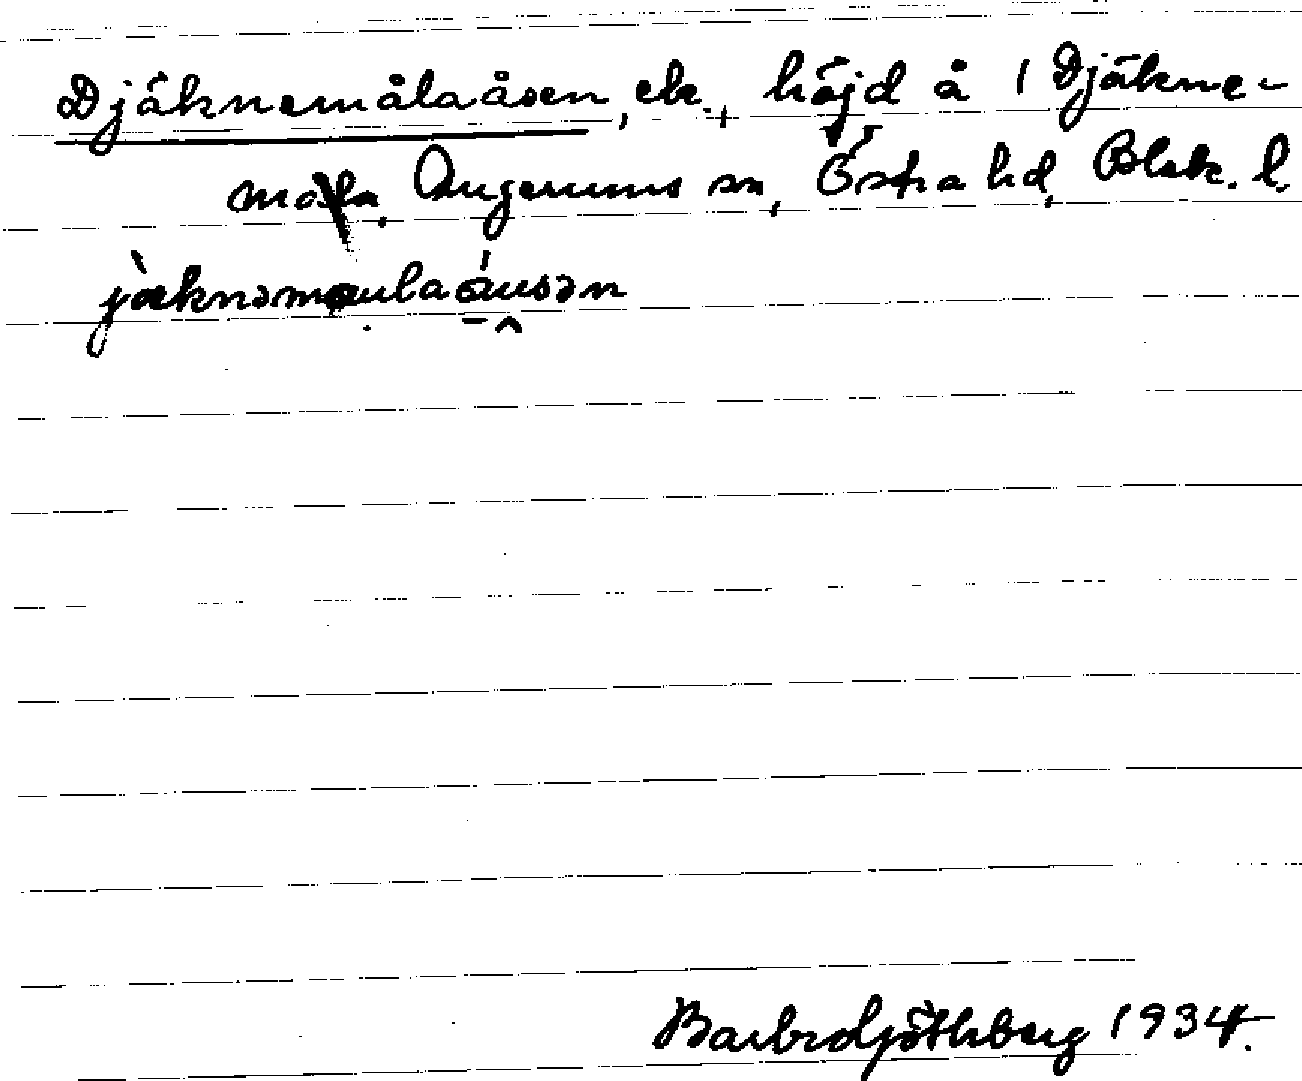 Djäknemålaåsen, ek., höjd å 1 Djäkne-
måla, Augerums sn, Östra hd, Blek. l.
jæ̀knəmɷulaɷ́usən
Barbro Göthberg 1934.